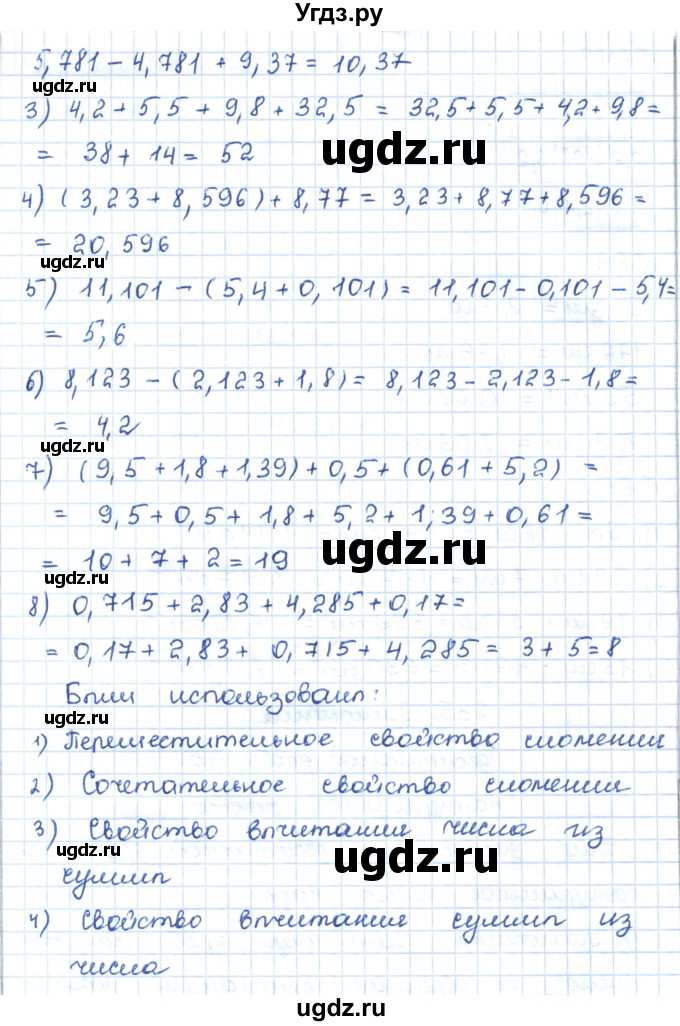 Угдз.ру
5,781 - 4,781 + 9,37 = 10,37
ugdz.ru
3) 4,2 + 5,5 + 9,8 + 32,5 = 32,5 + 5,5 + 4,2 + 9,8 =
= 38 + 14 = 52
ugdz.ru
4) (3,23 + 8,596) + 8,77 = 3,23 + 8,77 + 8,596 =
= 20,596
ugdz.ru
5) 11,101 - (5,4 + 0,101) = 11,101 - 0,101 - 5,4 =
= 5,6
6) 8,123 - (2,123 + 1,8) = 8,123 - 2,123 - 1,8 =
= 4,2
ugdz.ru
7) (9,5 + 1,8 + 1,39) + 0,5 + (0,61 + 5,2) =
= 9,5 + 0,5 + 1,8 + 5,2 + 1,39 + 0,61 =
ugdz.ru
= 10 + 7 + 2 = 19
ugdz.ru
8) 0,715 + 2,83 + 4,285 + 0,17 =
= 0,17 + 2,83 + 0,715 + 4,285 = 3 + 5 = 8
Были использованы:
ugdz.ru
1) Переместительное свойство сложения
2) Сочетательное свойство сложения
3) Свойство вычитания числа из
ugdz.ru
ugdz.ru
суммы
4) Свойство вычитания суммы из
числа
ugdz.ru